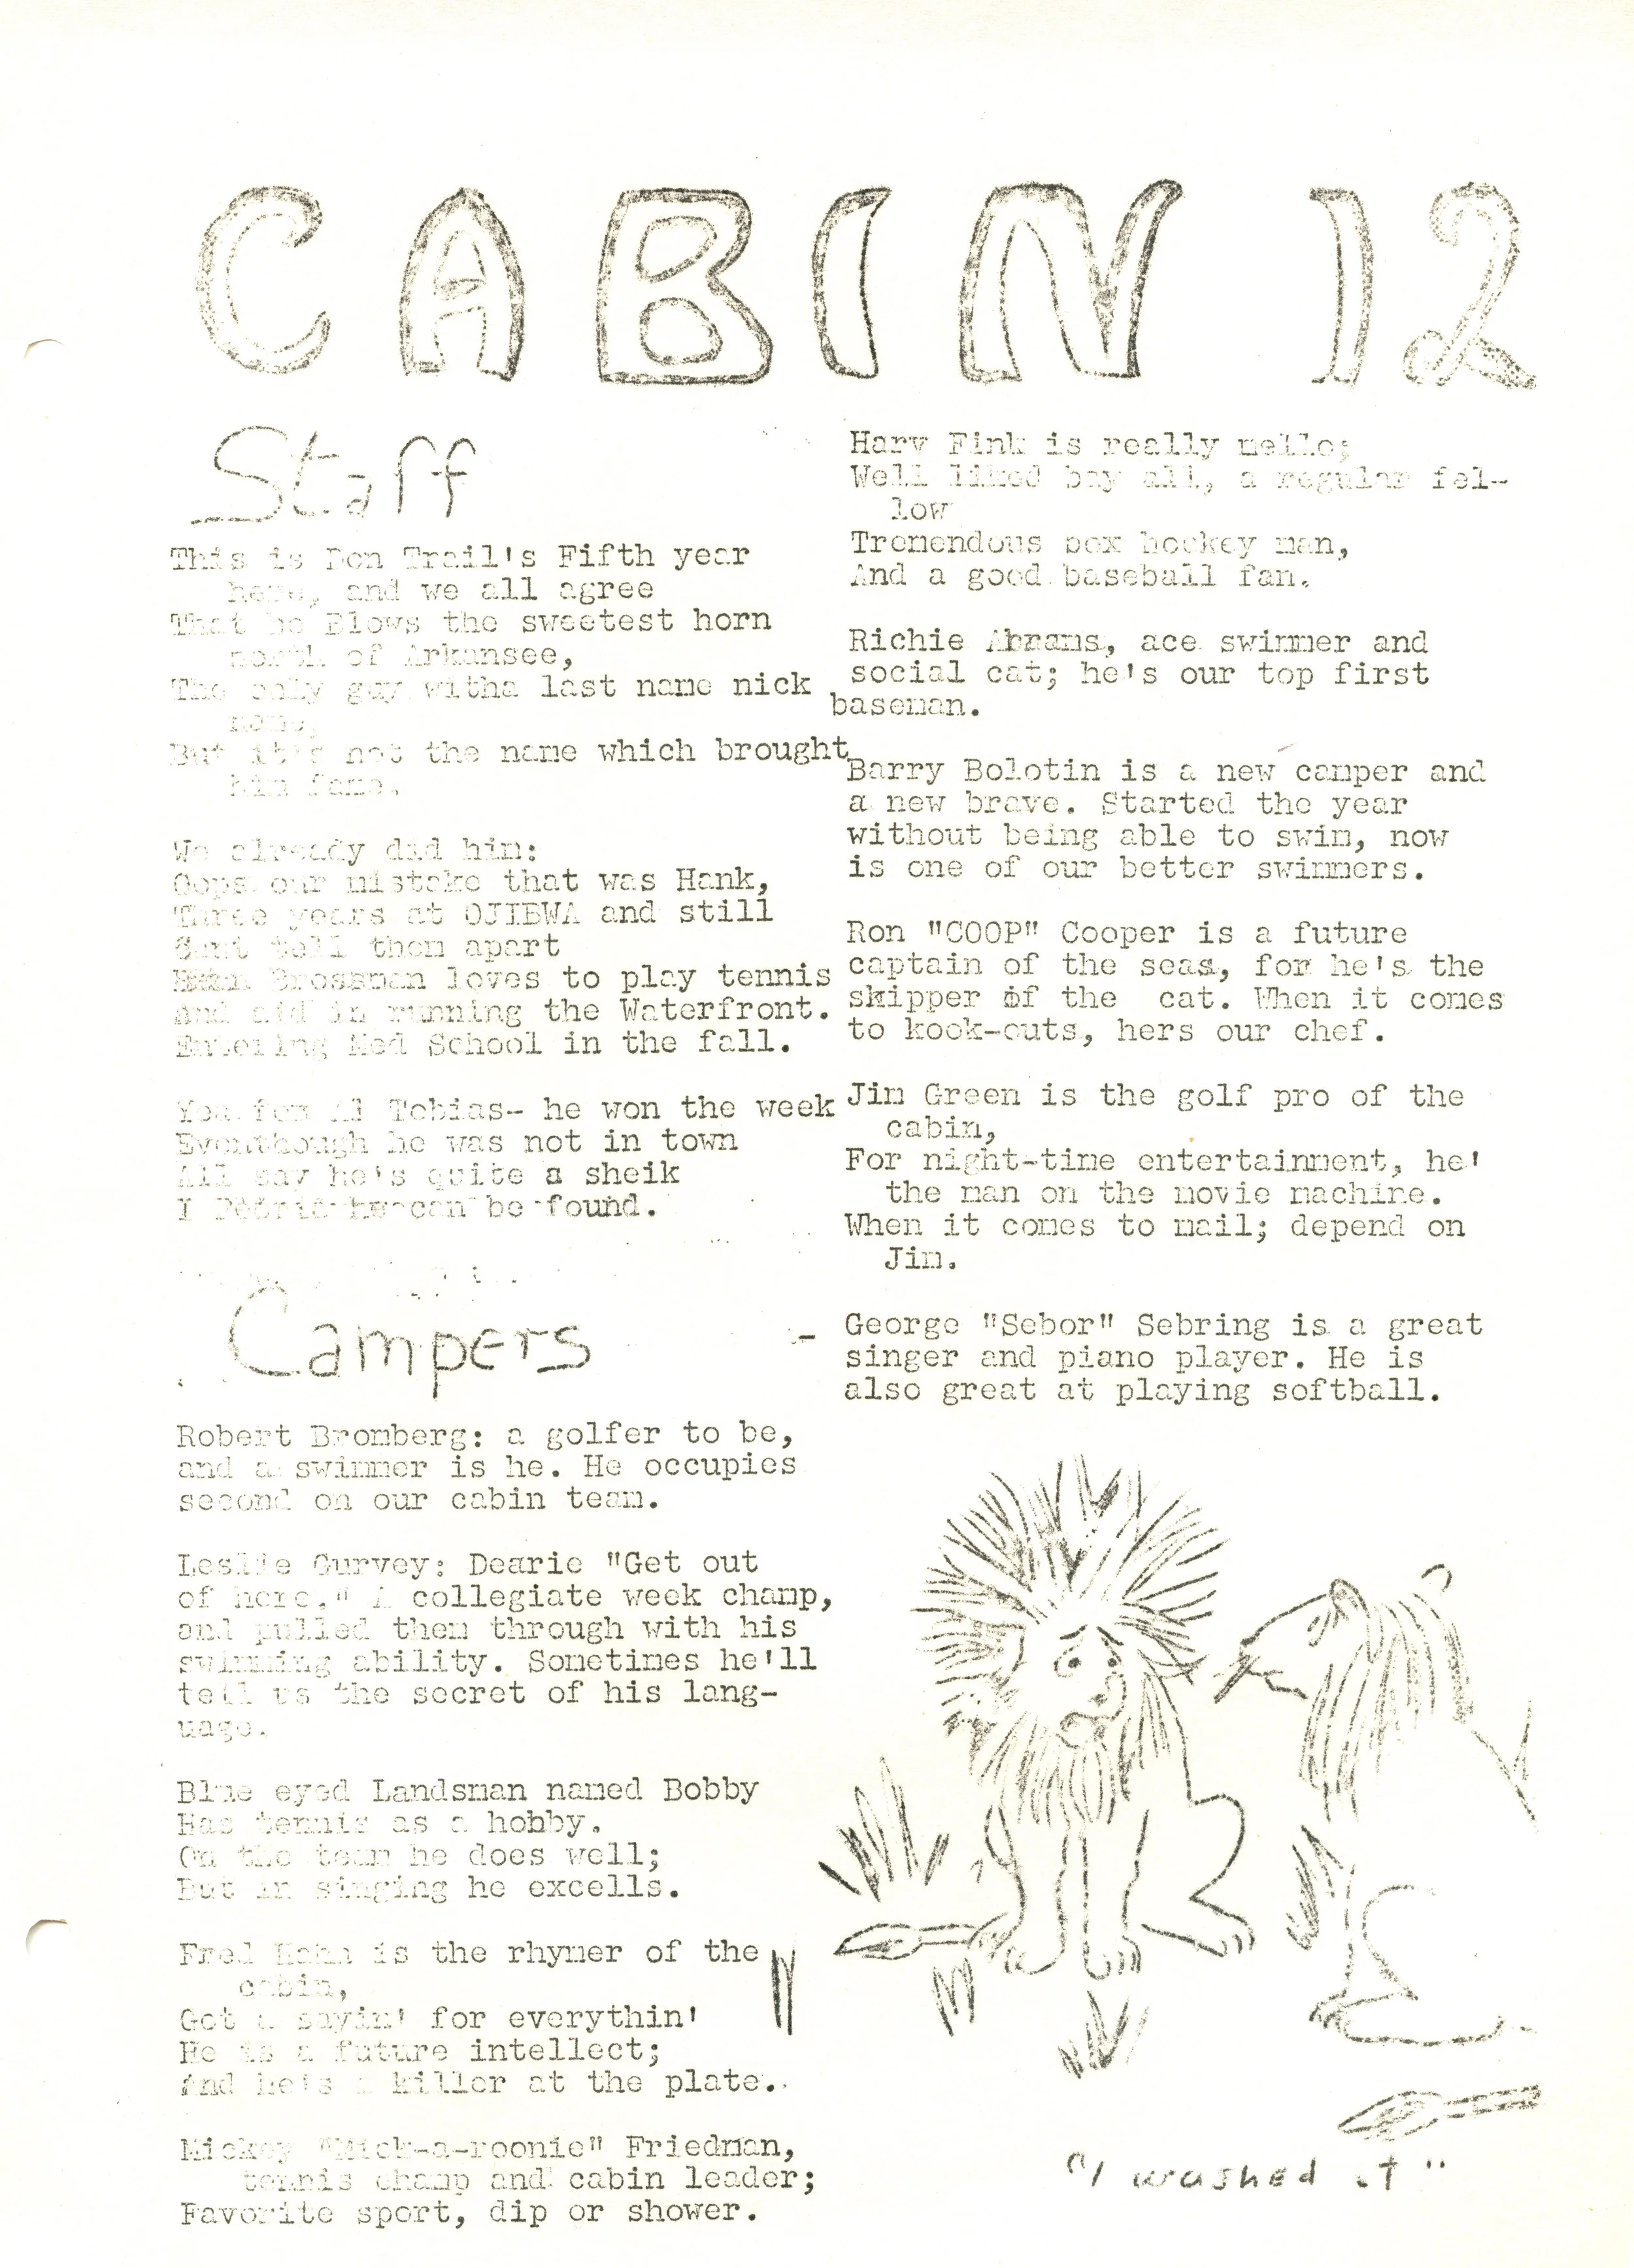 CABIN 12
Staff
This is Don Trail's Fifth year
here, and we all agree
That he Blows the sweetest horn
north of Arkansee,
The only guy witha last name nick
name,
But it's not the name which brought
him fame.
We already did him:
Oops our mistake that was Hank,
Three years at OJIBWA and still
Cant tell them apart
Brossman loves to play tennis
And aid in running the Waterfront.
Entering Med School in the fall.
Tobias- he won the week
Eventhough he was not in town
All say he's quite a sheik
I he can be found.
Campers
Robert Bromberg: a golfer to be,
and a swimmer is he. He occupies
second on our cabin team.
Leslie Gurvey: Dearie "Get out
of here." A collegiate week champ,
and pulled them through with his
swimming ability. Sometimes he'll
tell us the secret of his lang-
uage.
Blue eyed Landsman named Bobby
Has tennis as a hobby.
On the team he does well;
But in singing he excells.
Fred Hahn is the rhymer of the
cabin,
Got a sayin' for everythin'
He is a future intellect;
And he's a killer at the plate.
Mickey "Mick-a-roonie" Friedman,
tennis champ and cabin leader;
Favorite sport, dip or shower.
Harv Fink is really mello;
Well liked bay all, a regular fel-
low
Tremendous box hockey man,
And a good baseball fan.
Richie Abrams, ace swimmer and
social cat; he's our top first
baseman.
Barry Bolotin is a new camper and
a new brave. Started the year
without being able to swim, now
is one of our better swimmers.
Ron "COOP" Cooper is a future
captain of the seas, for he's the
skipper of the cat. When it comes
to kook-outs, hers our chef.
Jim Green is the golf pro of the
cabin,
For night-time entertainment, he'
the man on the movie machine.
When it comes to mail; depend on
Jim.
George "Sebor" Sebring is a great
singer and piano player. He is
also great at playing softball.
"I washed it"